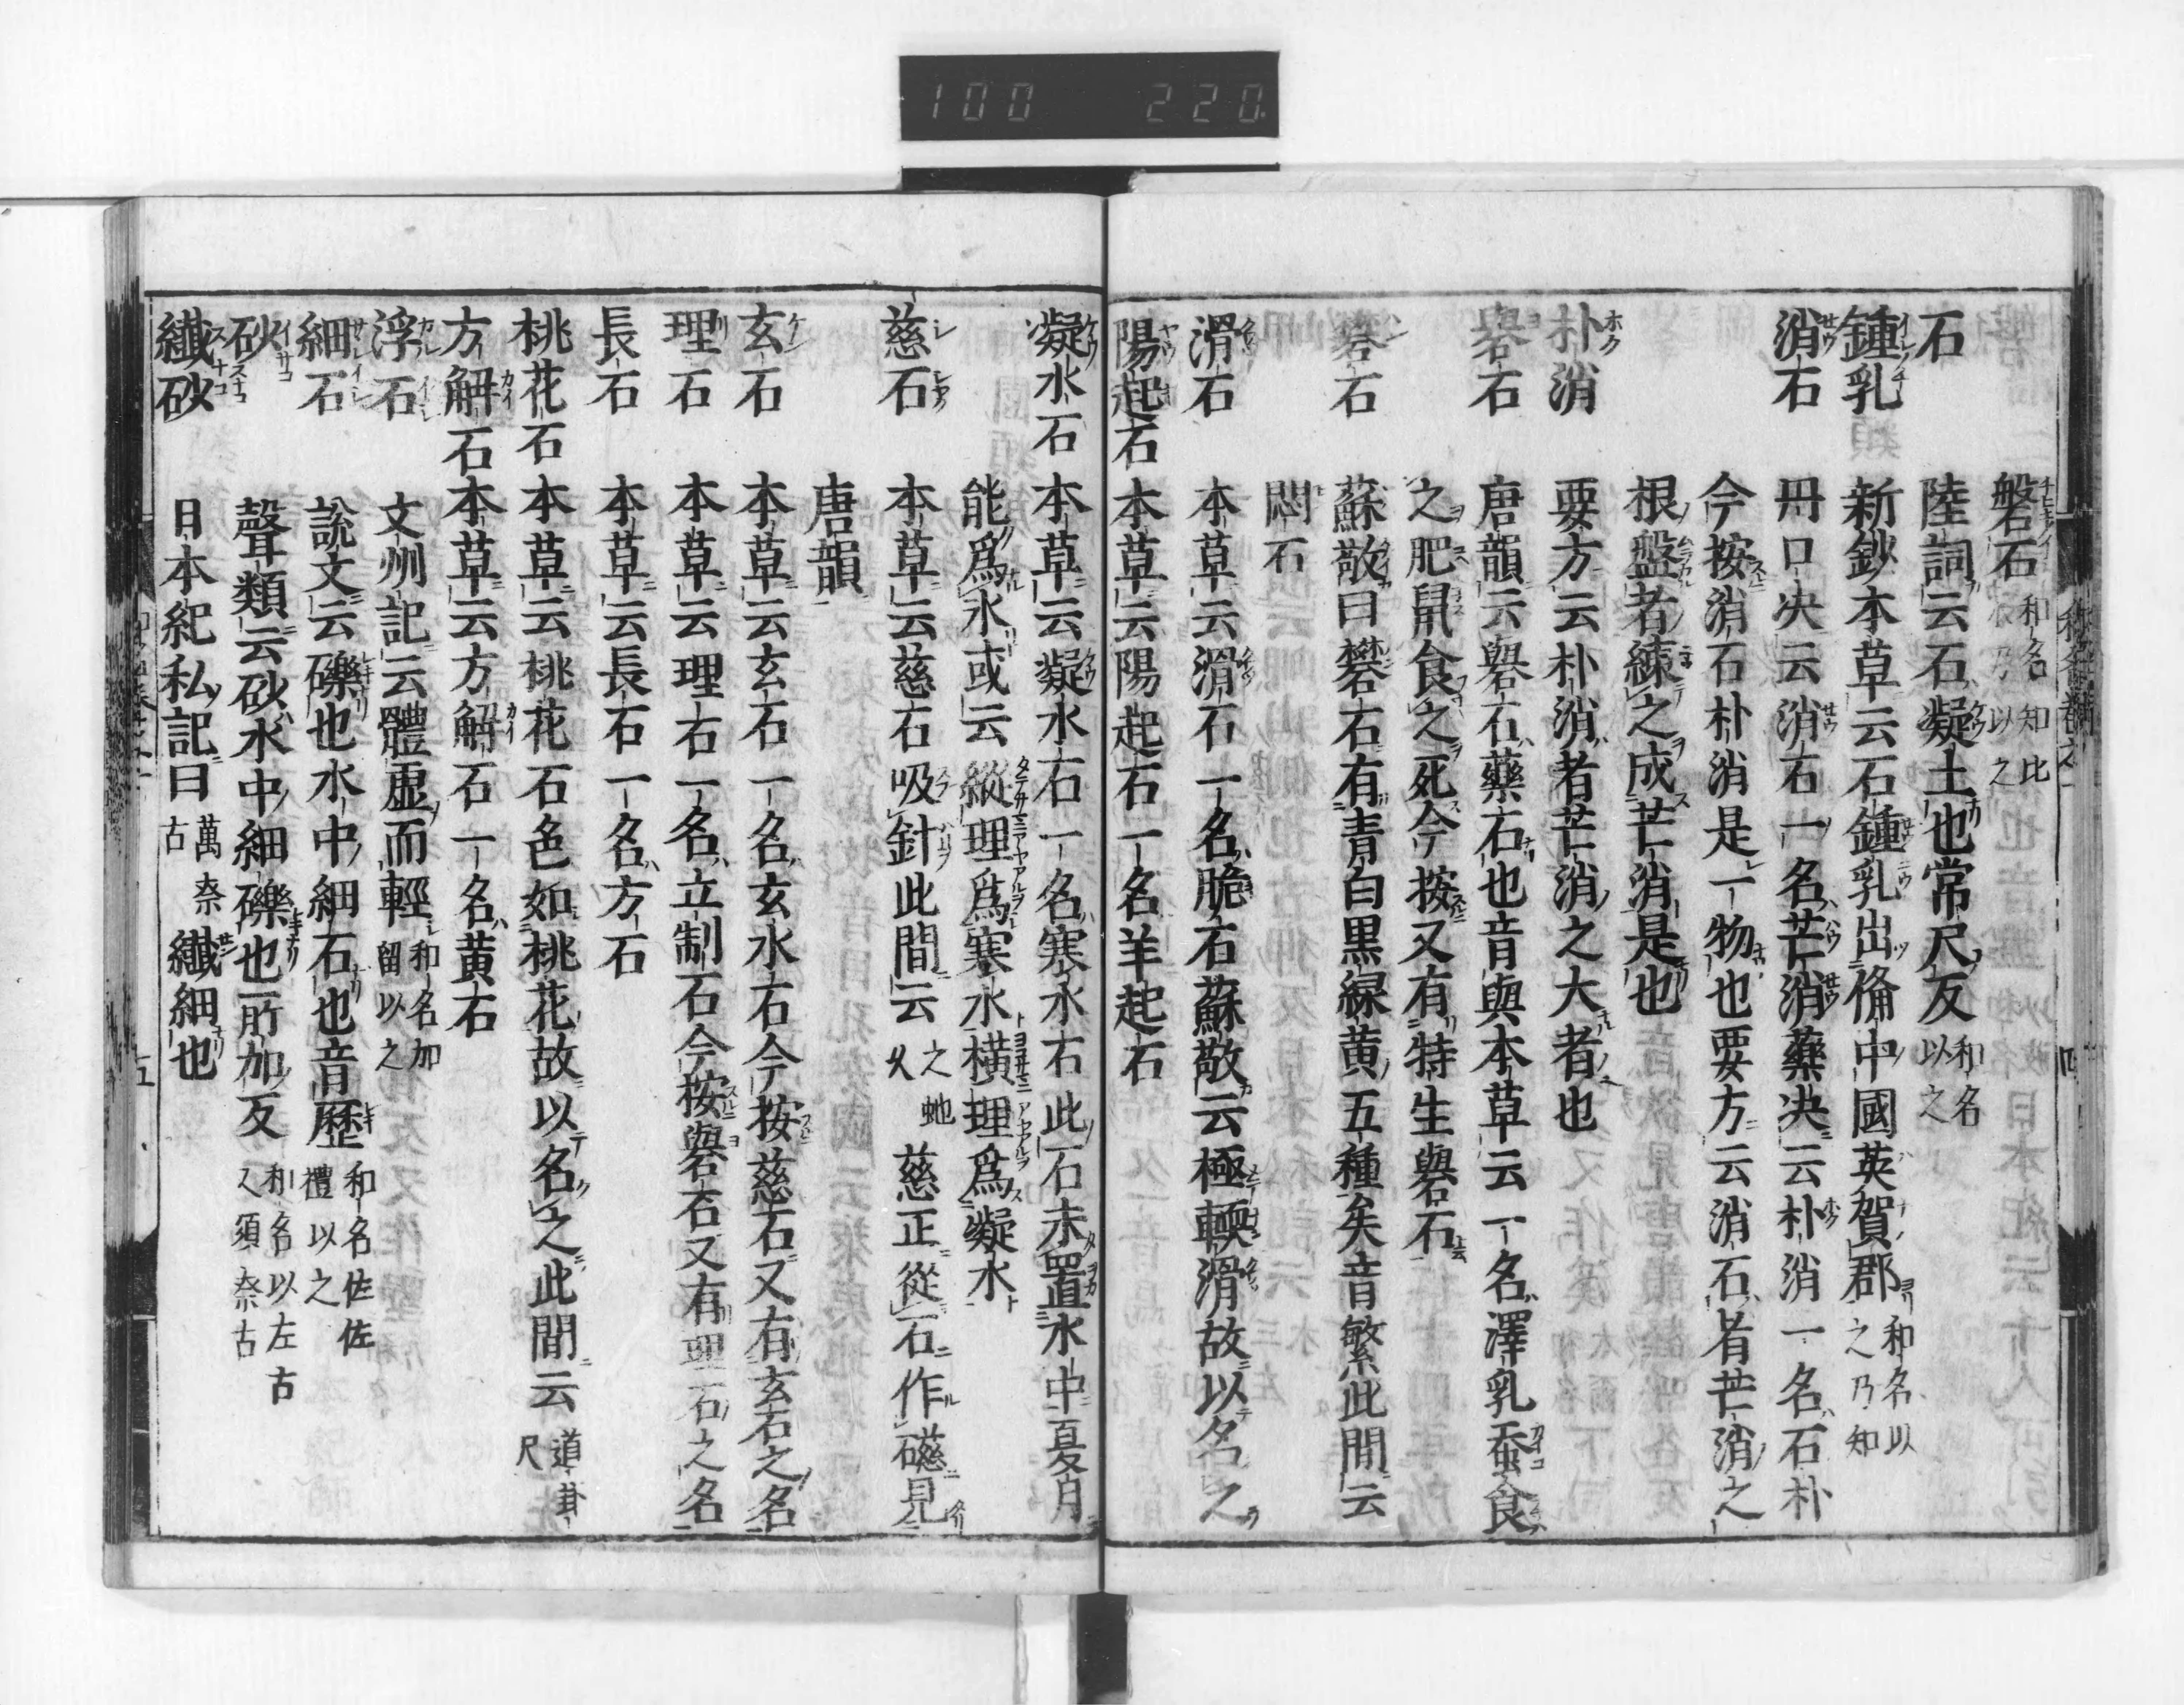 100 220.
磐石 和名知比 以之
石 陸詞云石凝土也常尺反 和名以之
鍾乳 新鈔本草云石鍾乳出備中國英賀郡 和名以之乃知
消石 丹口决云消石一名芒消藥决云朴消一名石朴
今按消石朴消是一物也要方云消石者芒消之
根盤者練之成芒消是也
朴消 要方云朴消者芒消之大者也
礜石 唐韻云礜石藥石也音與本草云一名澤乳蚕食
之肥鼠食之死今按又有特生礜石
礬石 蘇敬曰礬石有青白黒緑黄五種矣音繁此間云
悶石
滑石 本草云滑石一名脆石蘇敬云極軟滑故以名之
陽起石 本草云陽起石一名羊起石
凝水石 本草云凝水石一名寒水石此石末置水中夏月
能爲氷或云縦理爲寒水横理爲凝水
慈石 本草云慈石吸針此間云 之虵久 慈正從石作礠見
唐韻
玄石 本草云玄石一名玄水石今按慈石又有玄石之名
理石 本草云理石一名立制石今按礜石又有理石之名
長石 本草云長石一名方石
桃花石 本草云桃花石色如桃花故以名之此間云 道卦尺
方解石 本草云方解石一名黄石
浮石 文州記云體虚而輕 和名加留以之
細石 説文云礫也水中細石也音歴 和名佐佐禮以之
砂 聲類云砂水中細礫也所加反 和名以左古又須奈古
纎砂 日本紀私記曰 萬奈古 纎細也
五